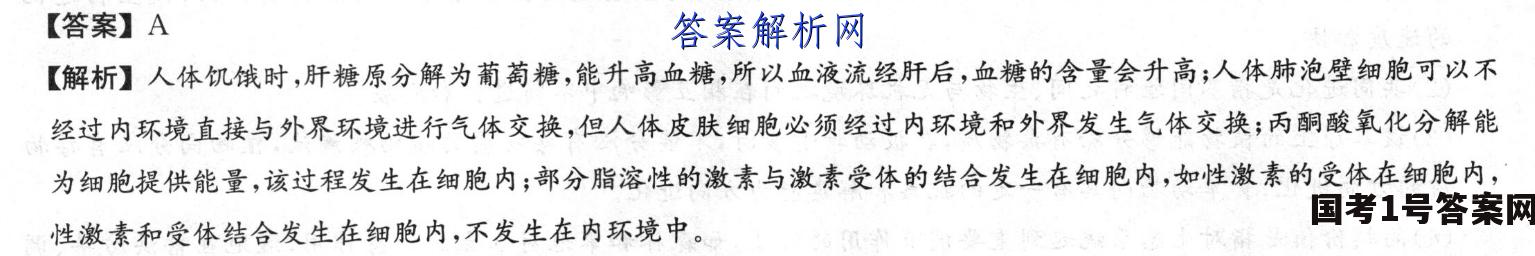 【答案】A
答案解析网
【解析】人体饥饿时,肝糖原分解为葡萄糖,能升高血糖,所以血液流经肝后,血糖的含量会升高;人体肺泡壁细胞可以不
经过内环境直接与外界环境进行气体交换,但人体皮肤细胞必须经过内环境和外界发生气体交换;丙酮酸氧化分解能
为细胞提供能量,该过程发生在细胞内;部分脂溶性的激素与激素受体的结合发生在细胞内,如性激素的受体在细胞内,
国考1号答案网
性激素和受体结合发生在细胞内,不发生在内环境中。